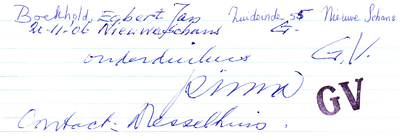 Boekhold, Egbert Jan Zuideinde 55 Nieuwe Schans
20-11-06 Nieuweschans G.
onderduikers G.V.
prima
GV
Contact: Wesselhuis.